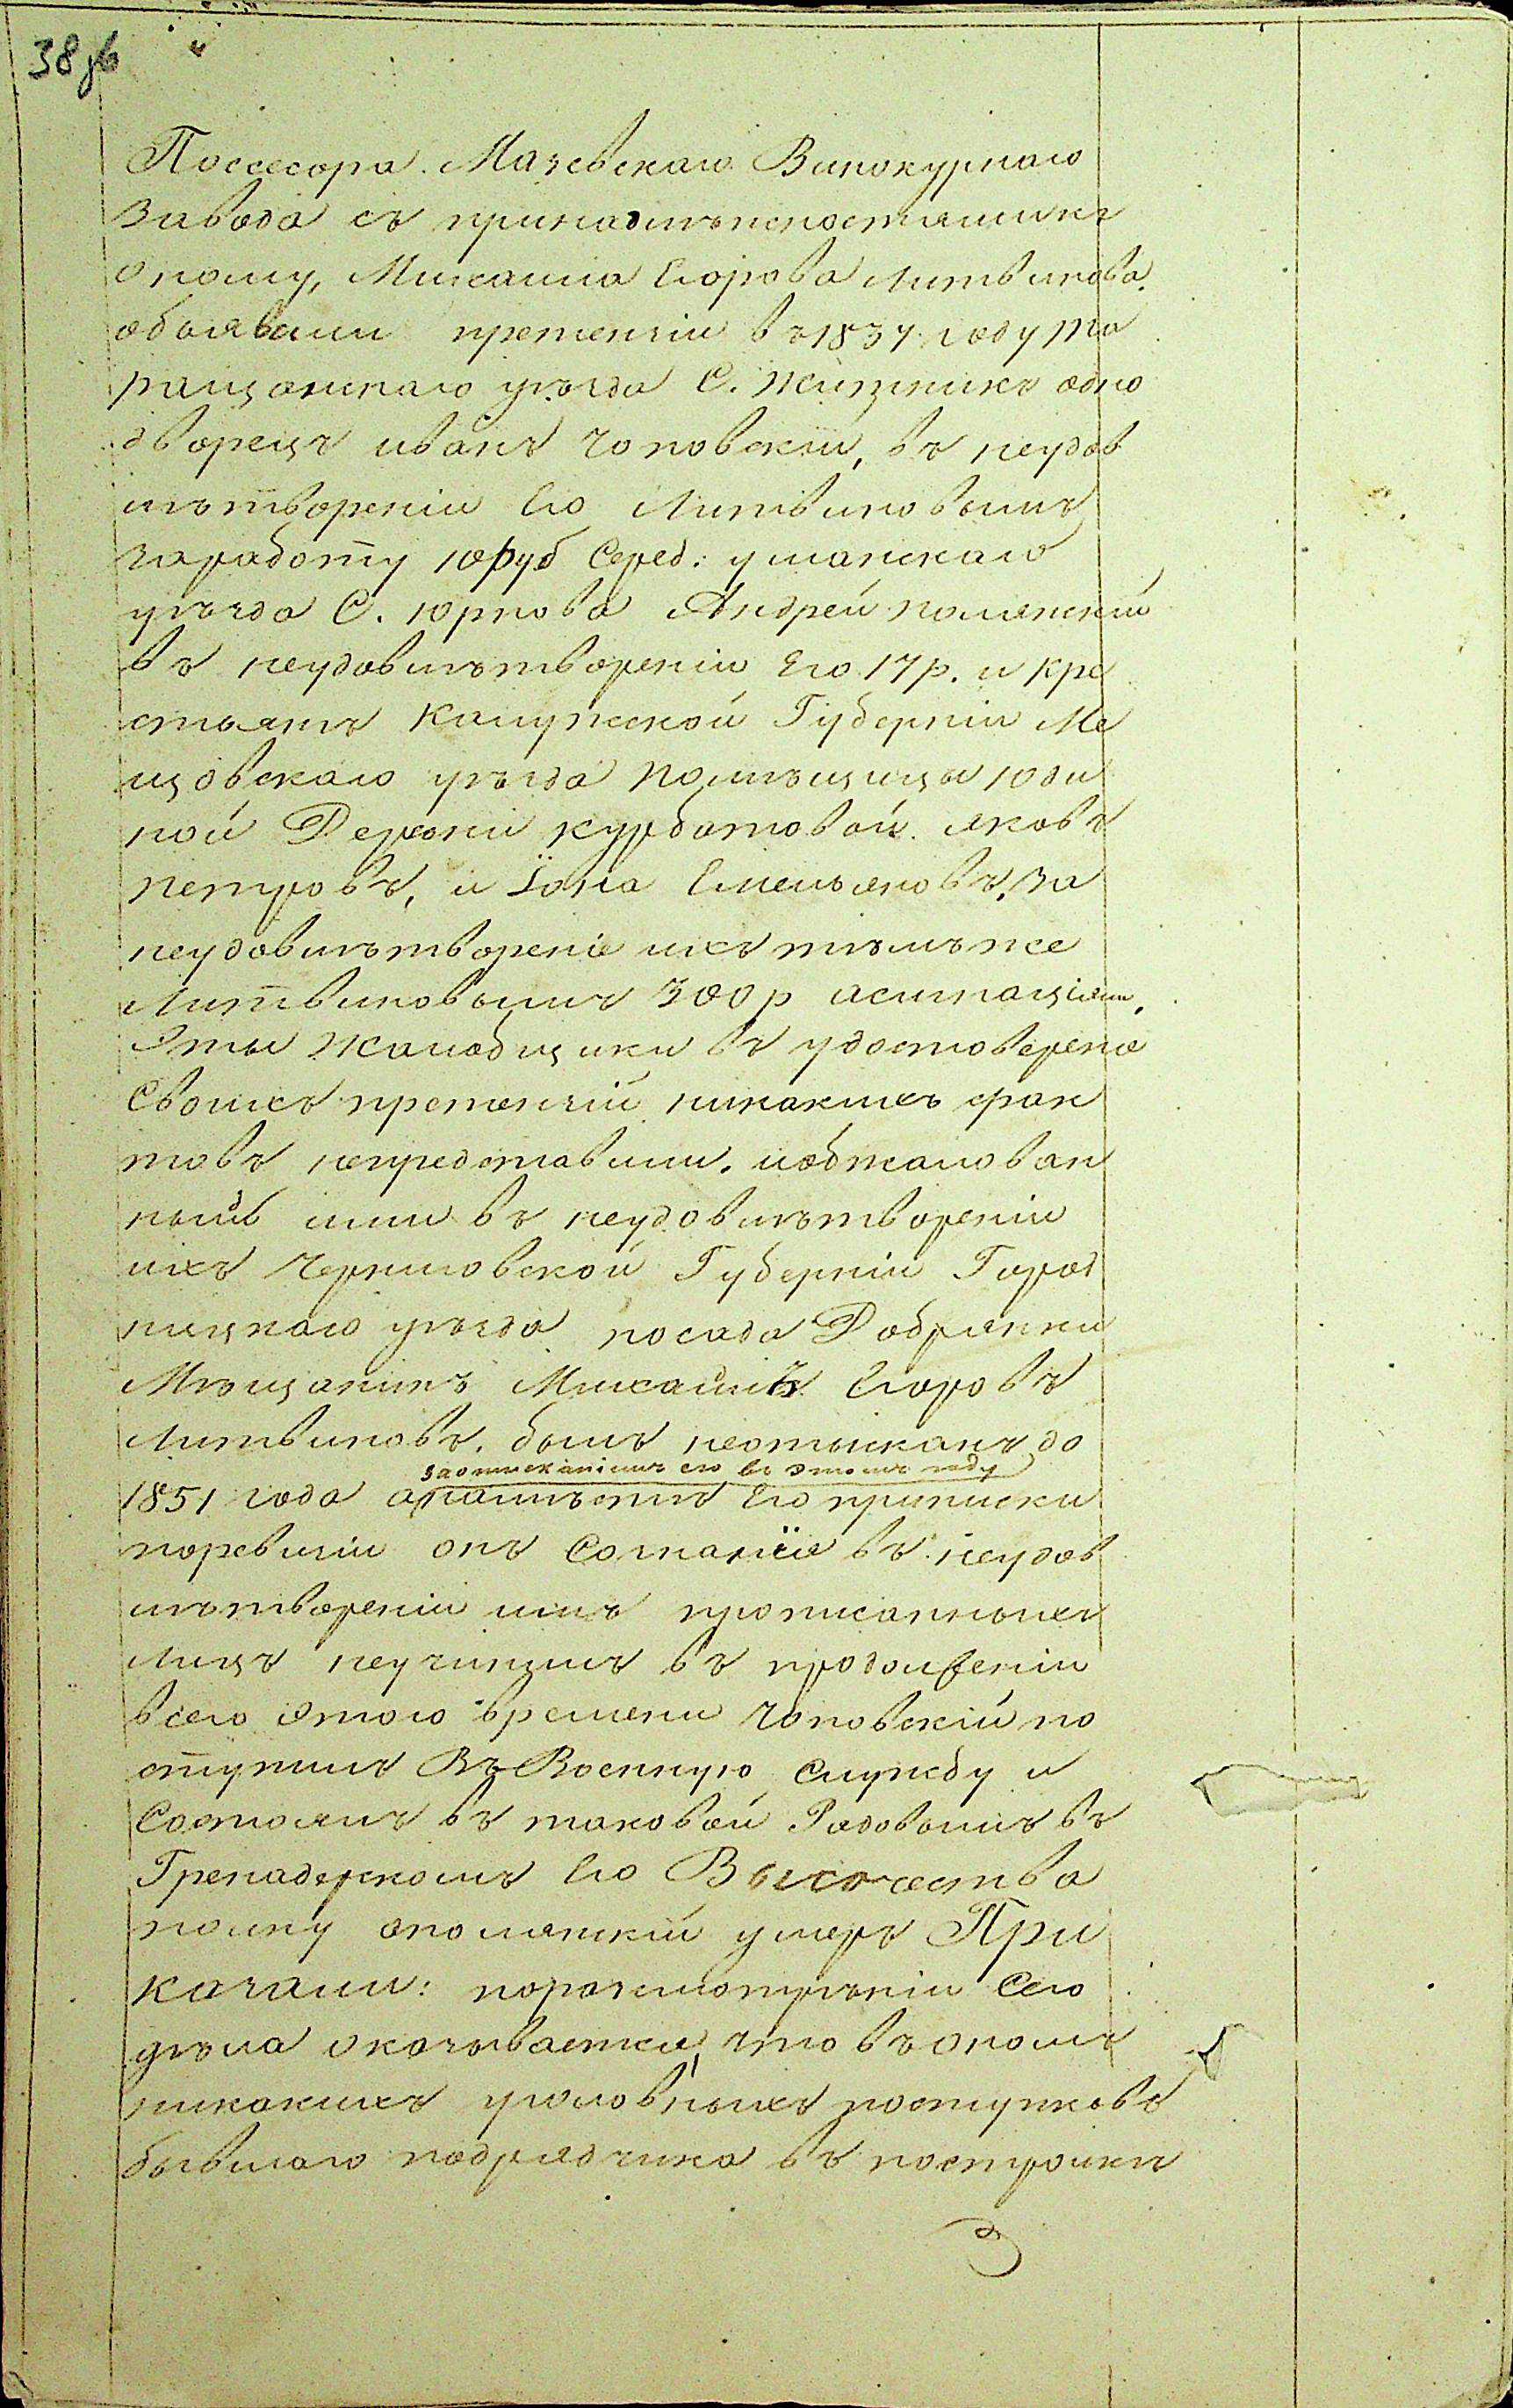 38 зв
Поссесора Мазевскаго Винокурнаго
Завода съ принадлѣжностямикъ
оному, Михаила Егорова Литвинова.
обьявили претензіи въ 1837 году та
ращанскаго уѣзда С. Жизникъ одно
дворецъ иванъ Чоповскій, въ неудов
лѣтвореніи Его Литвиновымъ
заработу 10 руб Серед: уманскаго
уѣзда С. Юркова Андрей полянскій
въ неудовилѣтвореніи Его 17 р. и кре
стьянъ Калужской Губерніи Ме
щовскаго уѣзда помѣщицы юди
ной Деревни курбатовой. яковъ
петровъ, и Іона Емельяновъ, за
неудовилѣтвореніе ихъ тѣмъ же
Литвиновымъ 300 р асигнаціями.
Эты Жалобщики въ удостоверение
Своихъ претензій никакихъ фак
товъ непредставили. иобжалован
ный ими въ неудовилѣтвореніи
ихъ Черниговской Губерніи Город
ницкаго уѣзда посада Добрянки
Мѣщанинъ Михаилъ Егоровъ
Литвиновъ. былъ неотысканъ до
заотысканіимъ его въ этомъ году
1851 года апомѣстѣ Его приписки
поревизіи онъ Сознанія въ неудов
лѣтвореніи имъ прописанныхъ
Лицъ неучинилъ въ продолженіи
всего этого времени Чоповскій по
ступилъ Въ Военную Службу и
Состоялъ въ таковой Рядовымъ въ
Гренадерскомъ Его Высочества
полку аполянскій умеръ При
казали: поразсмотрѣніи Сего
дѣла оказывается, что въ ономъ
никакихъ уголовныхъ поступковъ
бывшаго подрядчика въ постройки